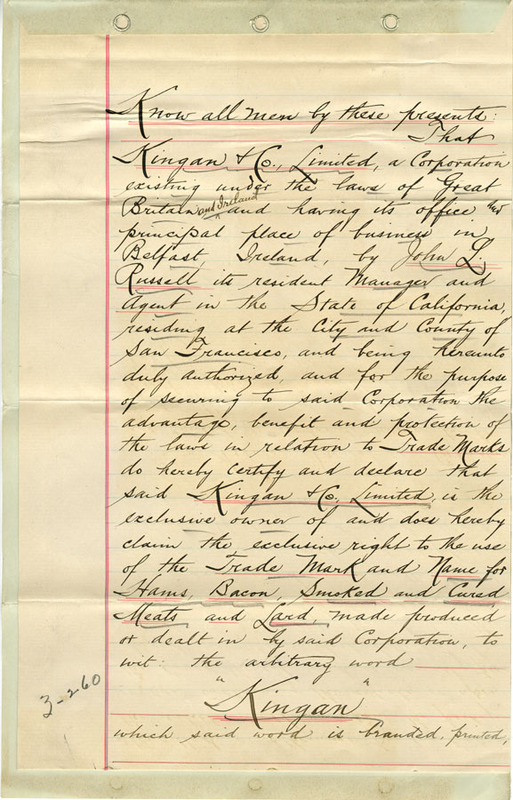 Know all men by these presents:
That
Kingan & Co., Limited, a Corporation
existing under the laws of Great
Britain and Ireland and having its office and
principal place of business in
Belfast, Ireland, by John L.
Russell its resident Manager and
Agent in the State of California,
residing at the City and County of
San Francisco, and being hereunto
duly authorized, and for the purpose
of securing to said Corporation the
advantage, benefit and protection of
the laws in relation to Trade Marks
do hereby certify and declare that
said Kingan & Co. Limited, is the
exclusive owner of and does hereby
claim the exclusive right to the use
of the Trade Mark and Name for
Hams, Bacon, Smoked and Cured
Meats and Lard, made produced
or dealt in by said Corporation, to
wit: the arbitrary word
"Kingan"
3-260
which said word is branded, printed,